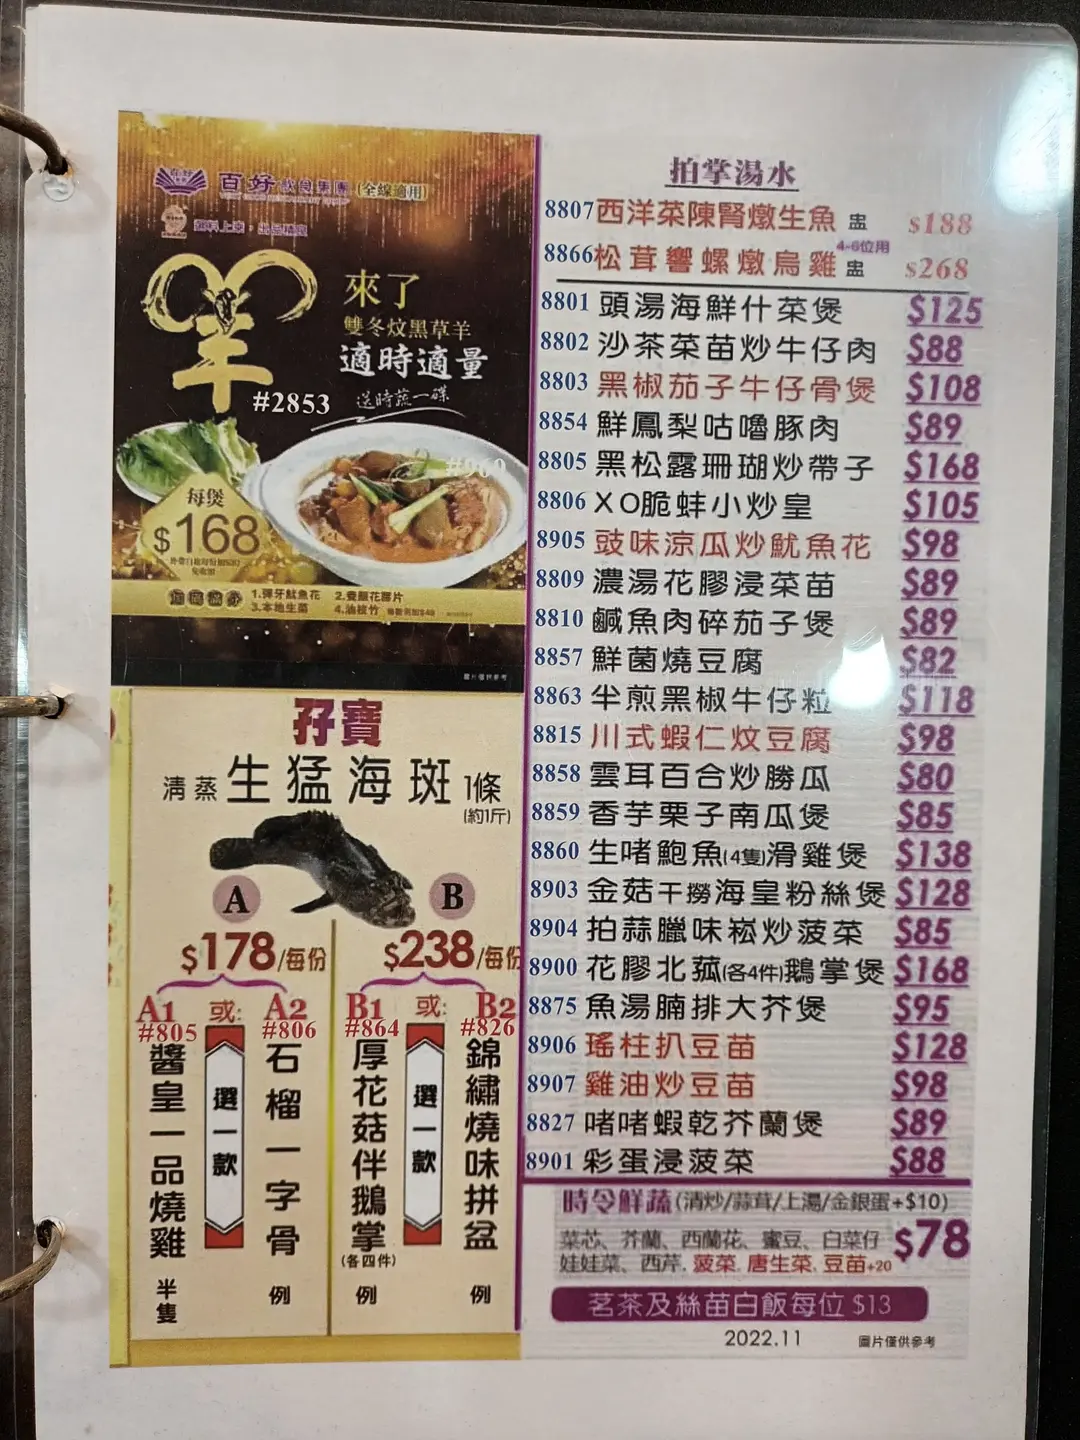 百好飲食集團(全線適用)
用料上乘，出品精良
羊
來了
雙冬炆黑草羊
適時適量
送時蔬一碟
#2853
每煲
$168
1.彈牙魷魚花
3.本地生菜
4.油枝竹
圖片僅供參考
孖寶
清蒸生猛海斑1條
(約1斤)
A
$178/每份
B
$238/每份
A1
#805
醬皇一品燒雞
半隻
或:
選一款
A2
#806
石榴一字骨
例
B1
#864
厚花菇伴鵝掌
(各四件)
例
或:
選一款
B2
#826
錦繡燒味拼盆
例
拍掌湯水
8807西洋菜陳腎燉生魚 盅 $188
8866松茸響螺燉烏雞 4-6位用 盅 $268
8801 頭湯海鮮什菜煲 $125
8802 沙茶菜苗炒牛仔肉 $88
8803 黑椒茄子牛仔骨煲 $108
8854 鮮鳳梨咕嚕豚肉 $89
8805 黑松露珊瑚炒帶子 $168
8806 XO脆蚌小炒皇 $105
8905 豉味涼瓜炒魷魚花 $98
8809 濃湯花膠浸菜苗 $89
8810 鹹魚肉碎茄子煲 $89
8857 鮮菌燒豆腐 $82
8863 半煎黑椒牛仔粒 $118
8815 川式蝦仁炆豆腐 $98
8858 雲耳百合炒勝瓜 $80
8859 香芋栗子南瓜煲 $85
8860 生啫鮑魚(4隻)滑雞煲 $138
8903 金菇干撈海皇粉絲煲 $128
8904 拍蒜臘味崧炒菠菜 $85
8900 花膠北菰(各4件)鵝掌煲 $168
8875 魚湯腩排大芥煲 $95
8906 瑤柱扒豆苗 $128
8907 雞油炒豆苗 $98
8827 啫啫蝦乾芥蘭煲 $89
8901 彩蛋浸菠菜 $88
時令鮮蔬(清炒/蒜茸/上湯/金銀蛋+$10)
菜芯、芥蘭、西蘭花、蜜豆、白菜仔
娃娃菜、西芹. 菠菜. 唐生菜. 豆苗+20
$78
茗茶及絲苗白飯每位 $13
2022.11
圖片僅供參考